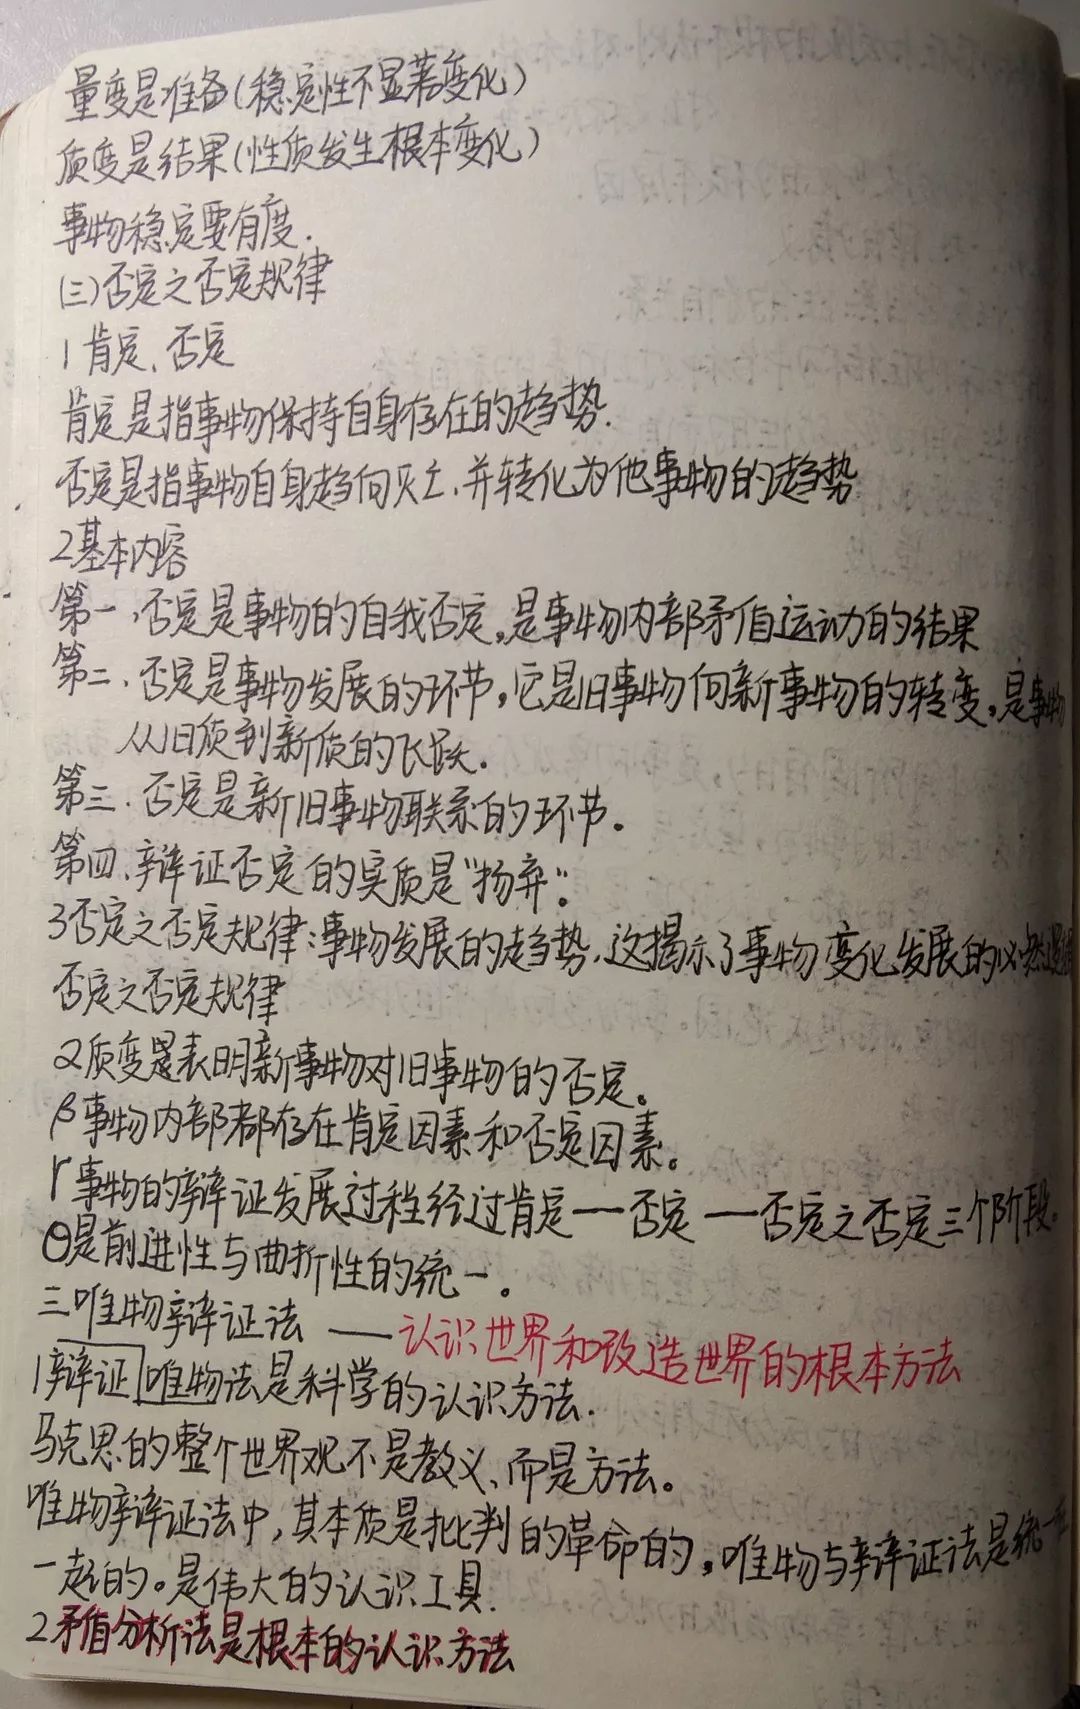 量变是准备(稳定性不显著变化)
质变是结果(性质发生根本变化)
事物稳定要有度.
(三)否定之否定规律
1肯定、否定
肯定是指事物保持自身存在的趋势.
否定是指事物自身趋向灭亡、并转化为他事物的趋势
2基本内容
第一、否定是事物的自我否定,是事物内部矛盾运动的结果
第二、否定是事物发展的环节,它是旧事物向新事物的转变,是事物
从旧质到新质的飞跃.
第三、否定是新旧事物联系的环节。
第四、辩证否定的实质是“扬弃”。
3否定之否定规律:事物发展的趋势、这揭示了事物变化发展的必然
否定之否定规律
α质变是表明新事物对旧事物的否定。
β事物内部都存在肯定因素和否定因素。
r事物的辩证发展过程经过肯定——否定——否定之否定三个阶段。
θ是前进性与曲折性的统一。
三唯物辩证法——认识世界和改造世界的根本方法
1辩证唯物法是科学的认识方法.
马克思的整个世界观不是教义、而是方法。
唯物辩证法中,其本质是批判的革命的,唯物与辩证法是统一在
一起的。是伟大的认识工具.
2矛盾分析法是根本的认识方法